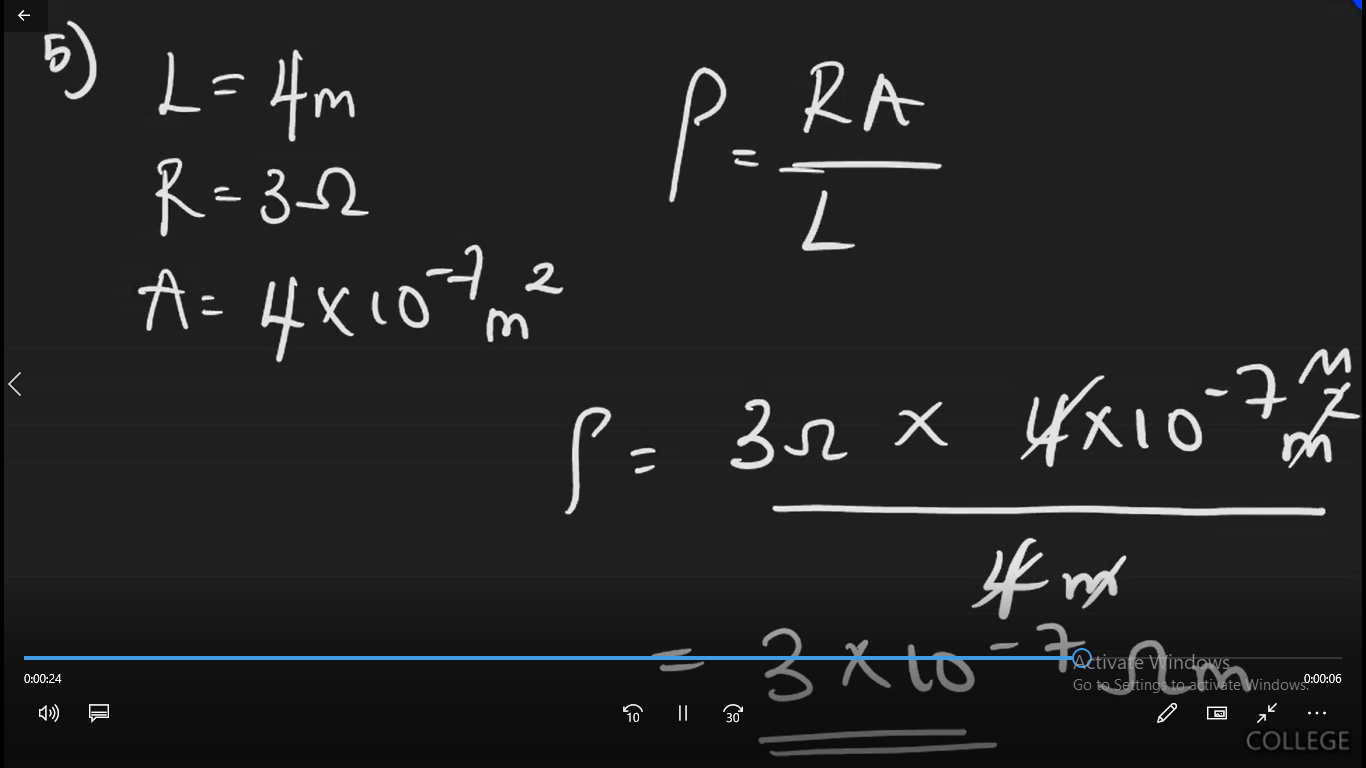 5)
L = 4m
R = 3Ω
A = 4×10⁻⁷ m²
ρ = RA
L
ρ = 3Ω × 4×10⁻⁷ m² m
4 m
= 3×10⁻⁷ Ωm
Activate Windows
Go to Settings to activate Windows.
0:00:24
0:00:06
10
30
COLLEGE